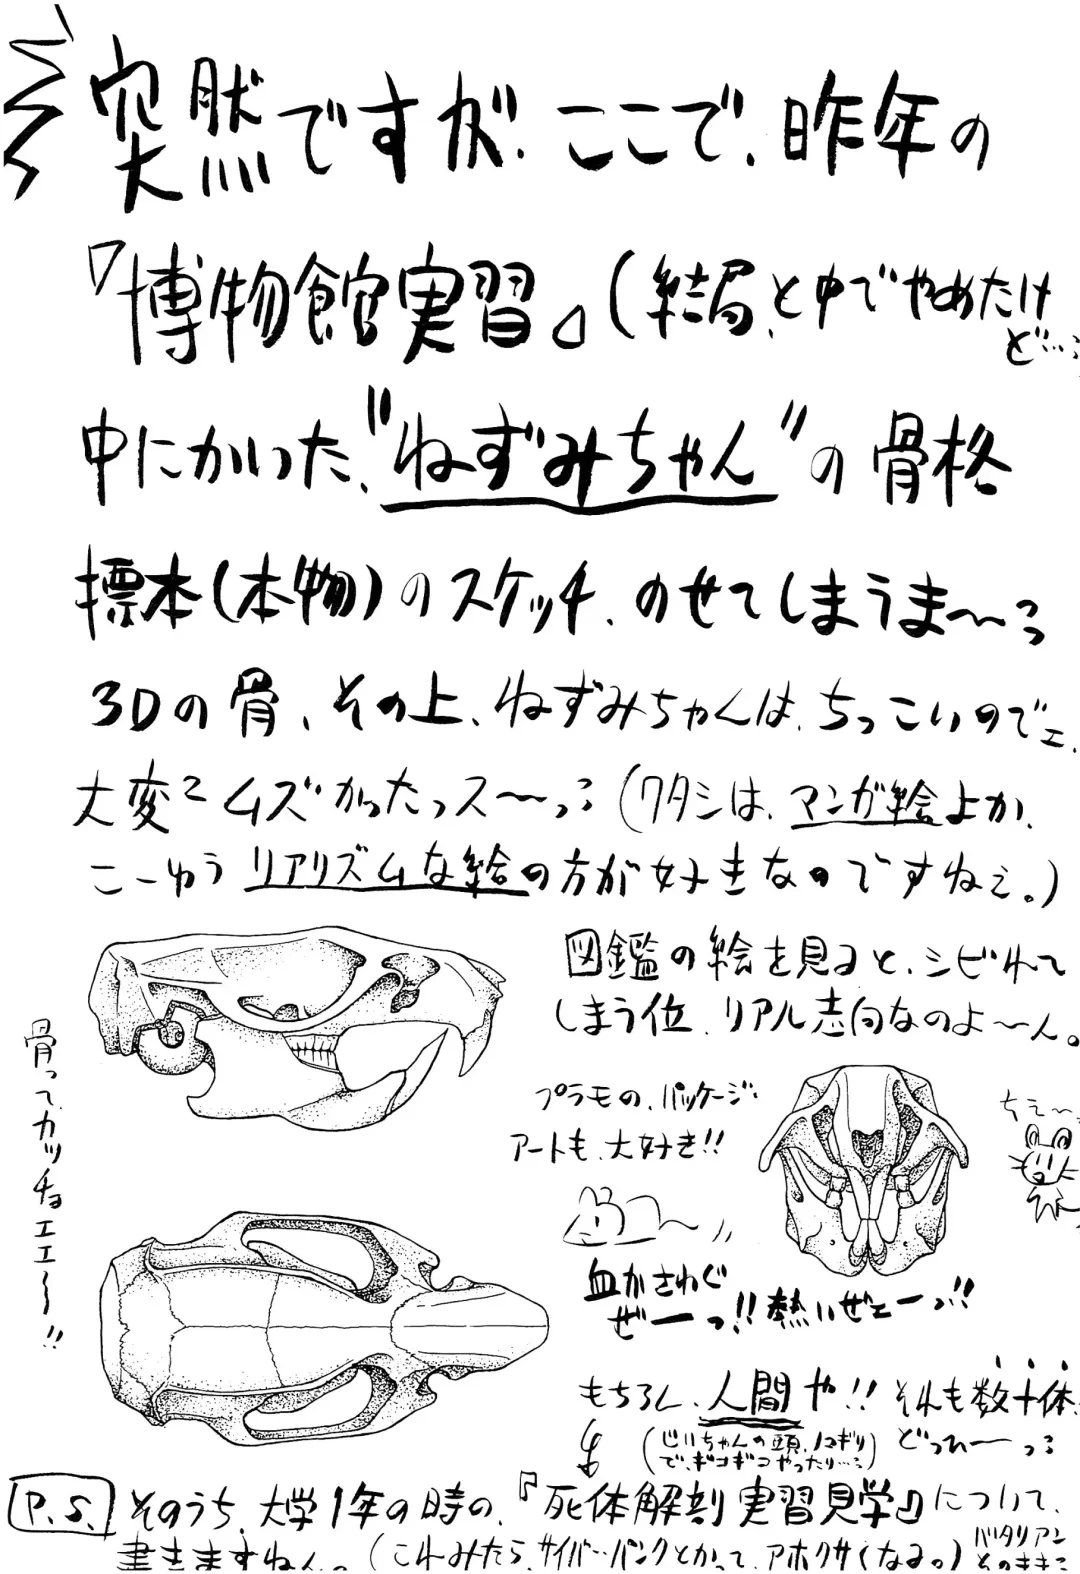 突然ですが、ここで、昨年の
『博物館実習』(結局、と中でやめたけ
ど…
中にかいった、"ねずみちゃん"の骨格
標本(本物)のスケッチ、のせてしまうま〜っ
3Dの骨、その上、ねずみちゃんは、ちっこいのでェ、
大変ムズかったっス〜っ(ワタシは、マンガ絵よか、
こーゆうリアリズムな絵の方が好きなのですねェ。)
図鑑の絵を見ると、シビれて
しまう位、リアル志向なのよ〜ん。
骨って、カッチョエエ〜!!
プラモの、パッケージ
アートも、大好き!!
ちェ〜
血がさわぐ
ぜーっ!!熱いぜェーっ!!
もちろん、人間や!! それも数十体、
どっひーっ
(じいちゃんの頭、ノコギリ
で、ギコギコやったり…)
P.S. そのうち、大学1年の時の、『死体解剖実習見学』について、
書きますねん。(これみたら、サイバーパンクとかって、アホクサくなる。)バタリアン
そのまま